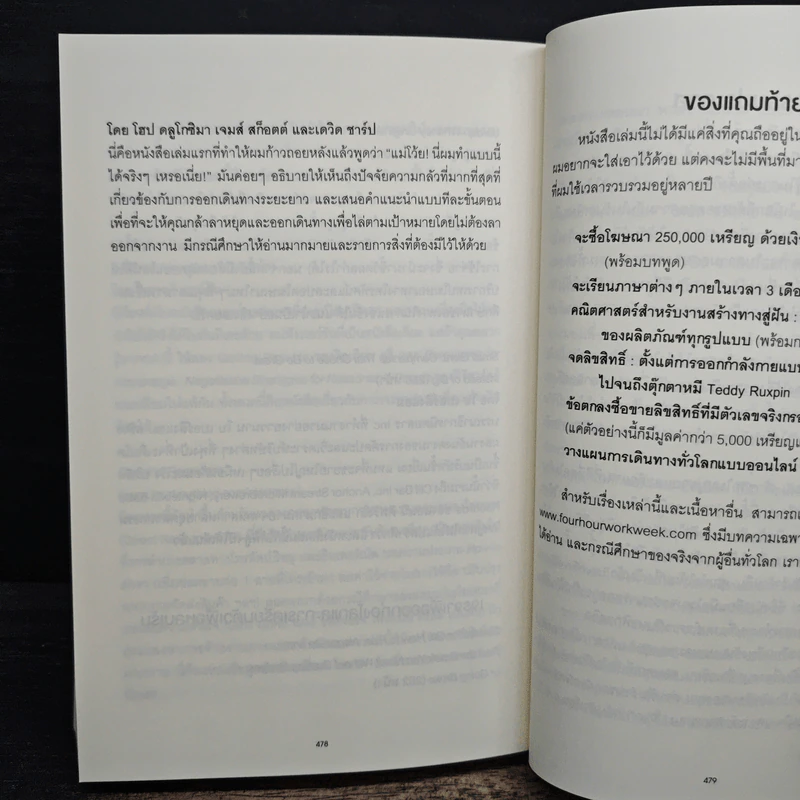 โดย โฮป ดลูโกซิมา เจมส์ สก็อตต์ และเดวิด ชาร์ป
นี่คือหนังสือเล่มแรกที่ทำให้ผมก้าวถอยหลังแล้วพูดว่า “แม่โว้ย! นี่ผมทำแบบนี้
ได้จริงๆ เหรอเนี่ย!” มันค่อยๆ อธิบายให้เห็นถึงปัจจัยความกลัวที่มากที่สุดที่
เกี่ยวข้องกับการออกเดินทางระยะยาว และเสนอคำแนะนำแบบทีละขั้นตอน
เพื่อที่จะให้คุณกล้าลาหยุดและออกเดินทางเพื่อไล่ตามเป้าหมายโดยไม่ต้องลา
ออกจากงาน มีกรณีศึกษาให้อ่านมากมายและรายการสิ่งที่ต้องมีไว้ให้ด้วย
478
ของแถมท้าย
หนังสือเล่มนี้ไม่ได้มีแค่สิ่งที่คุณถืออยู่ใน
ผมอยากจะใส่เอาไว้ด้วย แต่คงจะไม่มีพื้นที่มา
ที่ผมใช้เวลารวบรวมอยู่หลายปี
จะซื้อโฆษณา 250,000 เหรียญ ด้วยเงิ
(พร้อมบทพูด)
จะเรียนภาษาต่างๆ ภายในเวลา 3 เดือ
คณิตศาสตร์สำหรับงานสร้างทางสู่ฝัน :
ของผลิตภัณฑ์ทุกรูปแบบ (พร้อมก
จดลิขสิทธิ์ : ตั้งแต่การออกกำลังกายแบบ
ไปจนถึงตุ๊กตาหมี Teddy Ruxpin
ข้อตกลงซื้อขายลิขสิทธิ์ที่มีตัวเลขจริงกร
(แค่ตัวอย่างนี้ก็มีมูลค่ากว่า 5,000 เหรียญ
วางแผนการเดินทางทั่วโลกแบบออนไลน์
สำหรับเรื่องเหล่านี้และเนื้อหาอื่น สามารถ
www.fourhourworkweek.com ซึ่งมีบทความเฉพา
ได้อ่าน และกรณีศึกษาของจริงจากผู้อื่นทั่วโลก เรา
479